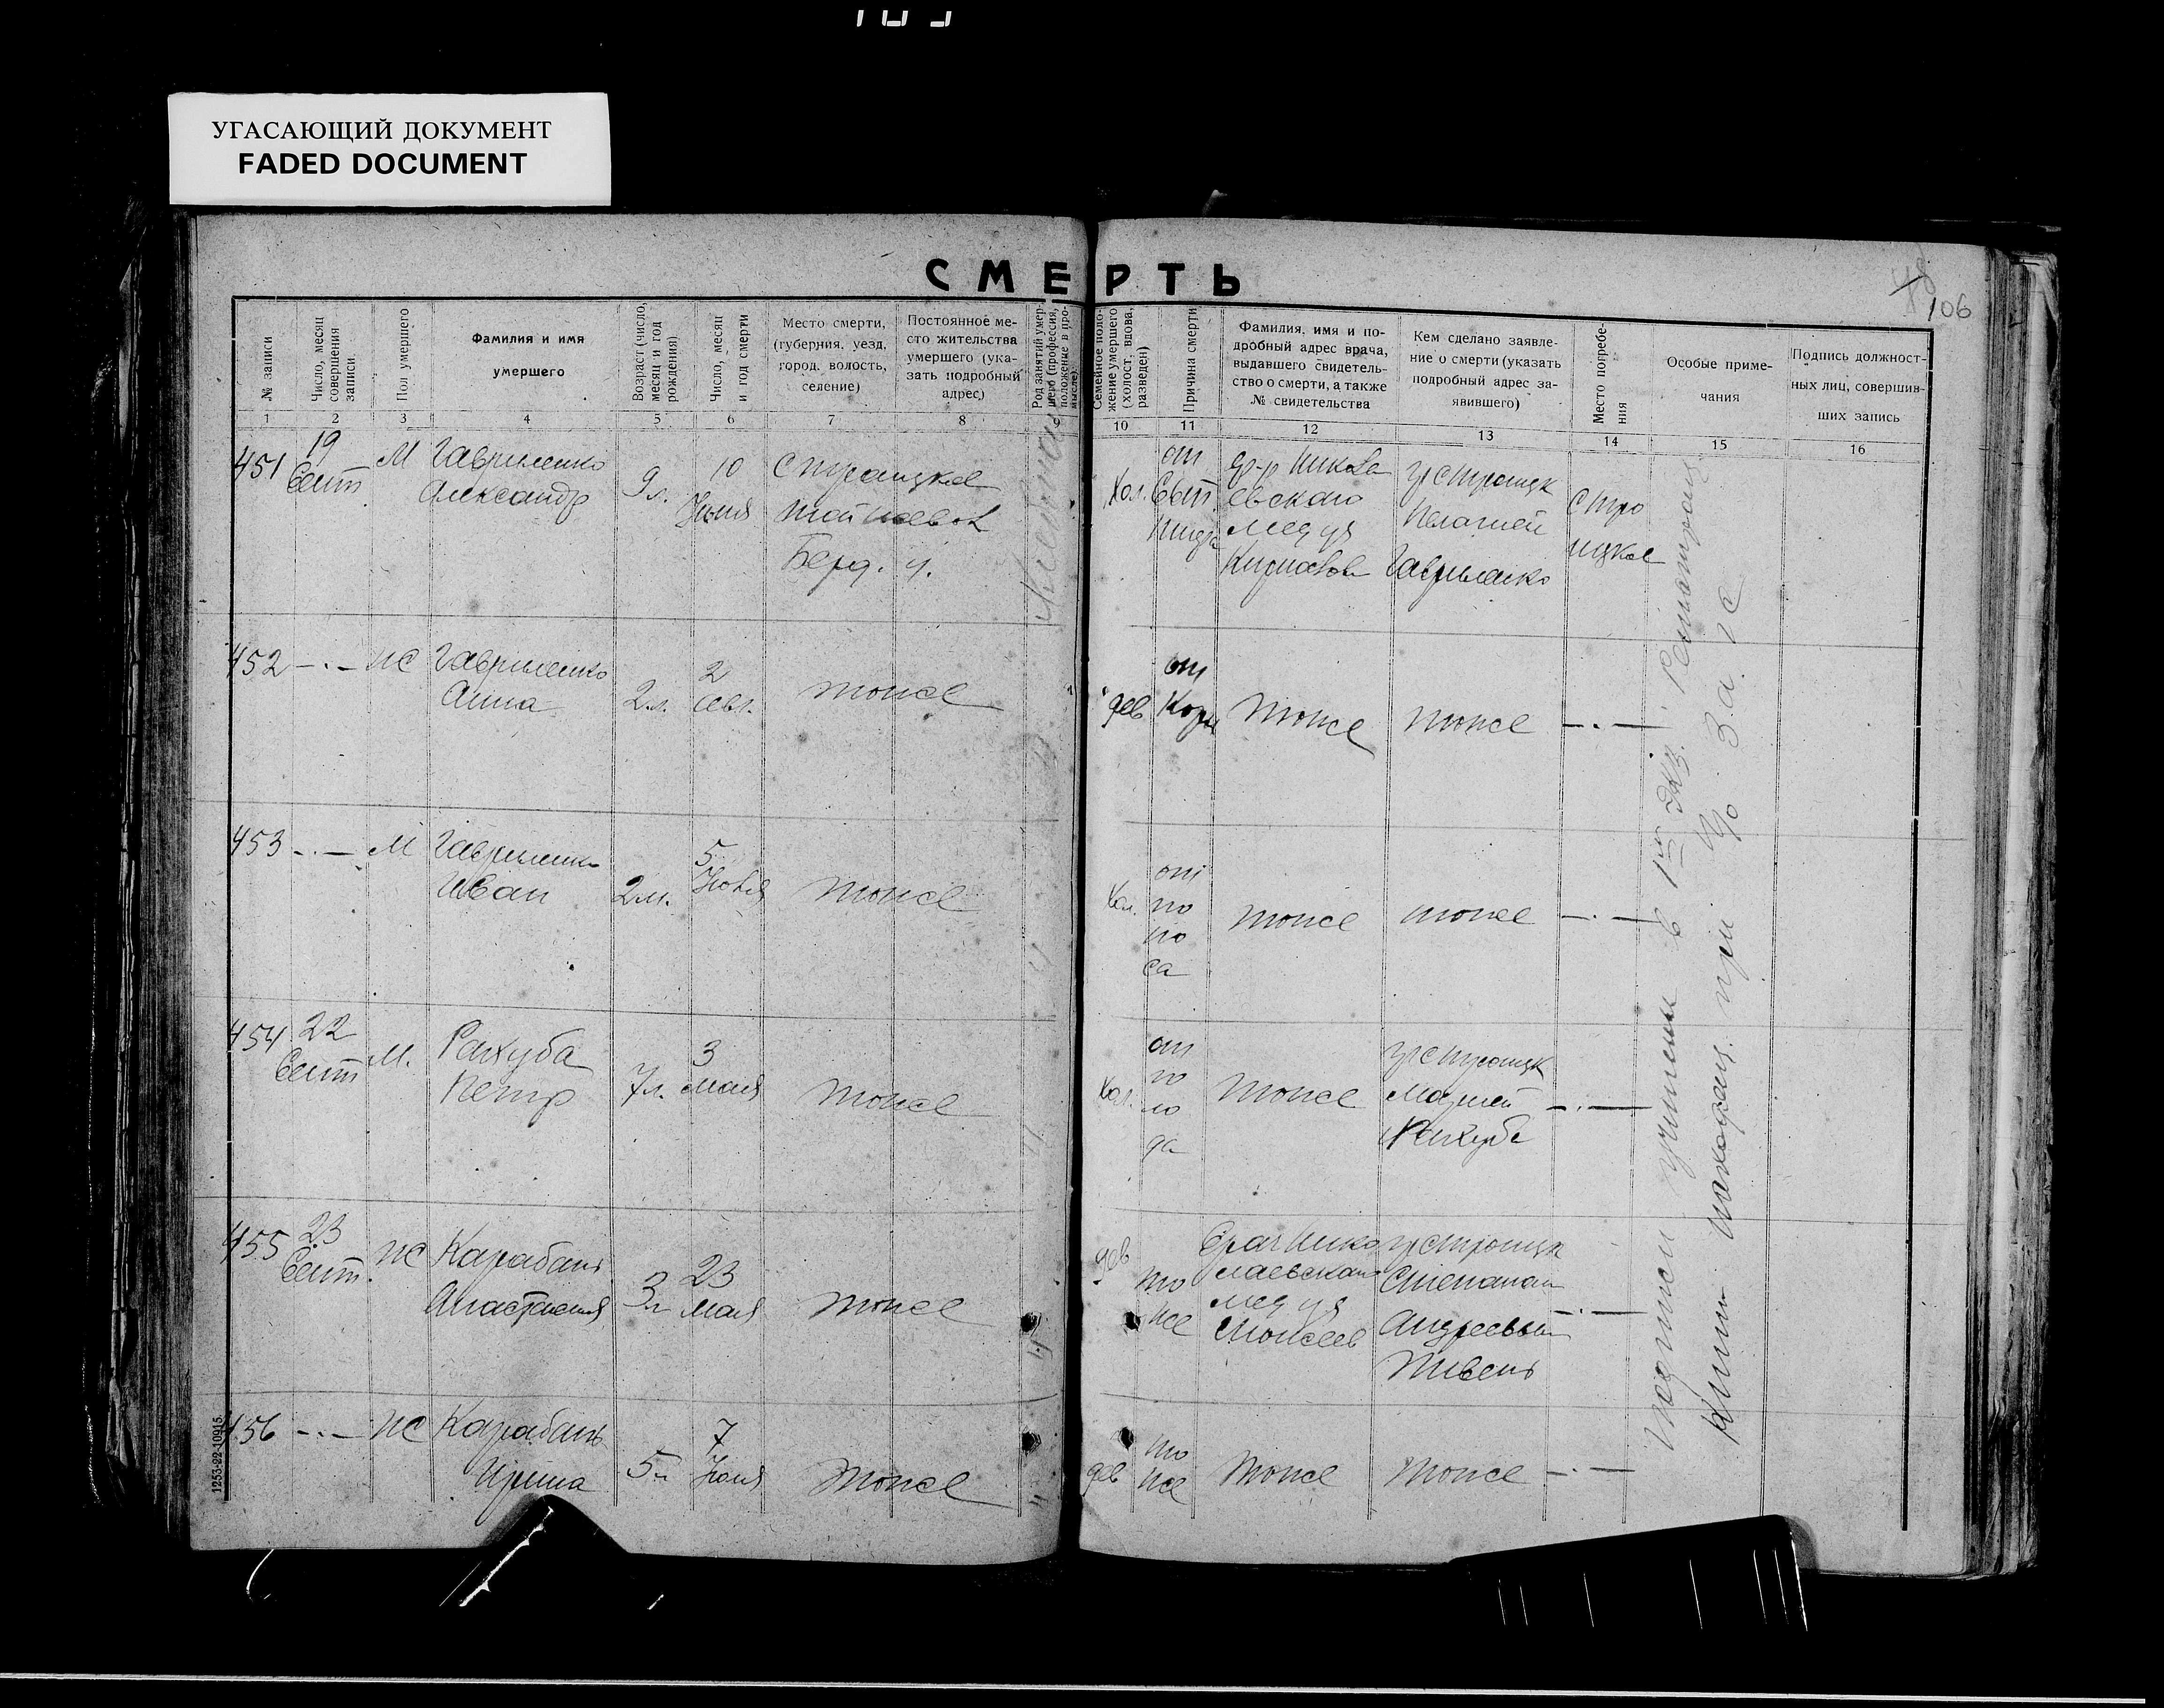 УГАСАЮЩИЙ ДОКУМЕНТ
FADED DOCUMENT
СМЕРТЬ
106
№ записи
Число, месяц совершения записи
Пол умершего
Фамилия и имя
умершего
Возраст (число, месяц и год рождения)
Число, месяц и год смерти
Место смерти,
(губерния, уезд,
город, волость,
селение)
Постоянное ме-
сто жительства
умершего (ука-
зать подробный
адрес)
Род занятий умер-
шего (профессия,
положение в про-
мысле)
Семейное поло-
жение умершего
(холост, вдова,
разведен)
Причина смерти
Фамилия, имя и по-
дробный адрес врача,
выдавшего свидетель-
ство о смерти, а также
№ свидетельства
Кем сделано заявле-
ние о смерти (указать
подробный адрес за-
явившего)
Место погребе-
ния
Особые приме-
чания
Подпись должност-
ных лиц, совершив-
ших запись
1 2 3 4 5 6 7 8 9 10 11 12 13 14 15 16
451
19
Сент
М
Гавриленко
Александр
9 л.
10
С Троицкое
Берд. у.
Хол.
от
Никола
евского
мед уч
Гавриленко
С Тро
ицкое
452 -.- ж
Гавриленко
Анна
2 л.
2
авг.
тоже
дев
от
Кори
тоже
тоже
-.-
453 -.- М
Гавриленко
Иван
2 м.
5
тоже
Хол.
от
по
но
са
тоже
тоже
-.-
454
22
Сент
М.
Рахуба
Петр
7 л.
3
мая
тоже
Хол.
от
го
ло
да
тоже
Марией
Рахуба
-.-
455
23
Сент.
ж
Карабань
Анастасия
3 л
23
мая
тоже
дев
то
же
Врач Нико
лаевского
мед уч
Моисеев
Степаном
Андреевым
Пивень
-.-
456 -.- ж
Карабань
Ирина
5 л
7
тоже
дев
то
же
тоже
тоже
-.-
Подписи учинены в 1-м экз.
Книги находящ. при
1253-22-10915.